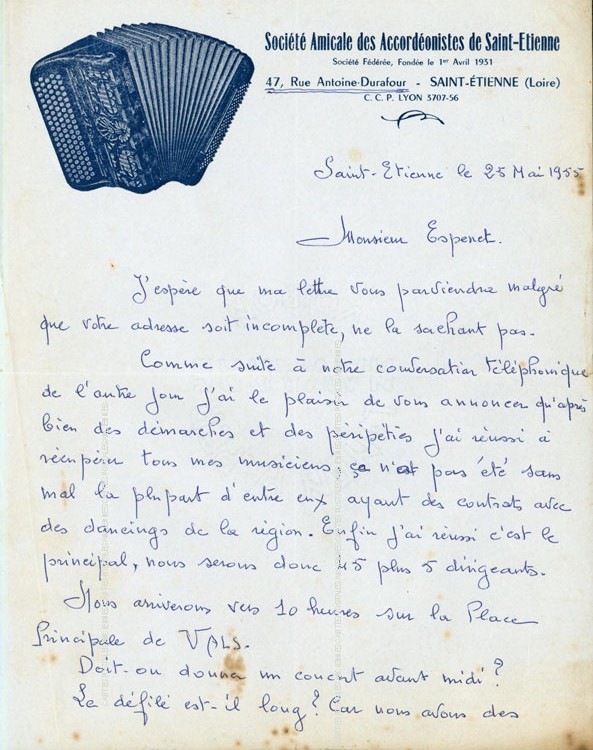 Société Amicale des Accordéonistes de Saint-Etienne
Société Fédérée, Fondée le 1er Avril 1931
47, Rue Antoine-Durafour - SAINT-ÉTIENNE (Loire)
C. C. P. LYON 3707-56
Saint-Etienne le 25 Mai 1955
Monsieur Espenet.
J'espère que ma lettre vous parviendra malgré
que votre adresse soit incomplète, ne la sachant pas.
Comme suite à notre conversation téléphonique
de l'autre jour j'ai le plaisir de vous annoncer qu'après
bien des démarches et des péripéties j'ai réussi à
récupérer tous mes musiciens. ça n'est pas été sans
mal la plupart d'entre eux ayant des contrats avec
des dancings de la région. Enfin j'ai réussi c'est le
principal, nous serons donc 45 plus 5 dirigeants.
Nous arriverons vers 10 heures sur la Place
Principale de VALS.
Doit-on donner un concert avant midi?
Le défilé est-il long? Car nous avons des